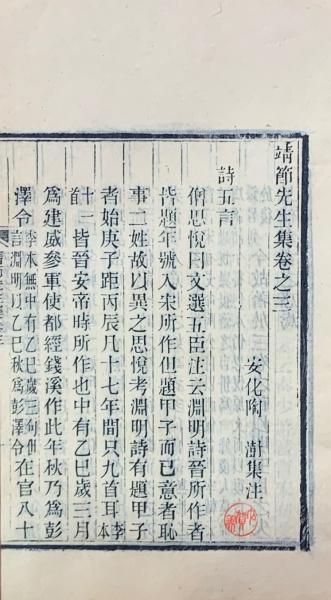 靖節先生集卷之三
安化陶澍集注
詩五言
僧思悅曰文選五臣注云淵明詩晉所作者
皆題年號入宋所作但題甲子而已意者恥
事二姓故以異之思悅考淵明詩有題甲子
者始庚子距丙辰凡十七年間只九首耳李本
十一首皆晉安帝時所作也中有乙巳歲三月
爲建威參軍使都經錢溪作此年秋乃爲彭
澤令李本無中有乙巳歲三句但言淵明以乙巳秋爲彭澤令在官八十